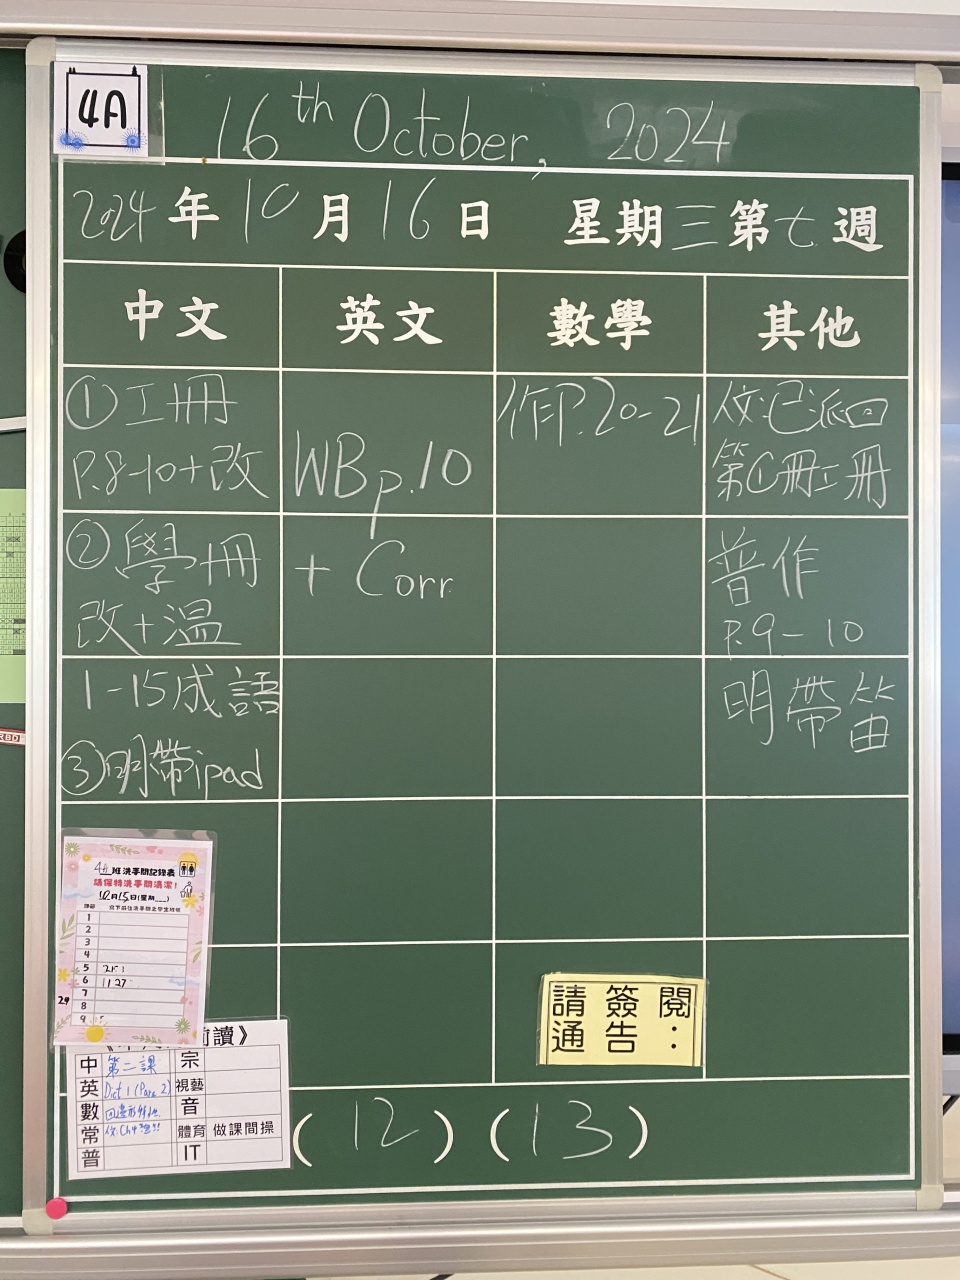 4A
16th October, 2024
2024年10月16日 星期三第七週
中文 英文 數學 其他
①工冊
P.8-10+改
②學冊
改+溫
1-15成語
③明帶ipad
WB p.10
+ Corr.
作P.20-21
已派回
第①冊工冊
普作
P.9-10
明帶笛
4A班洗手間記錄表
請保持洗手間清潔！
10月15日(星期___)
1
2
3
4
5
6 11 27
7
8
9
29
前讀》
中 第二課 宗
英 Dict 1 (Para 2) 視藝
數 音
常 體育 做課間操
普 IT
請簽閱
通告：
(12) (13)